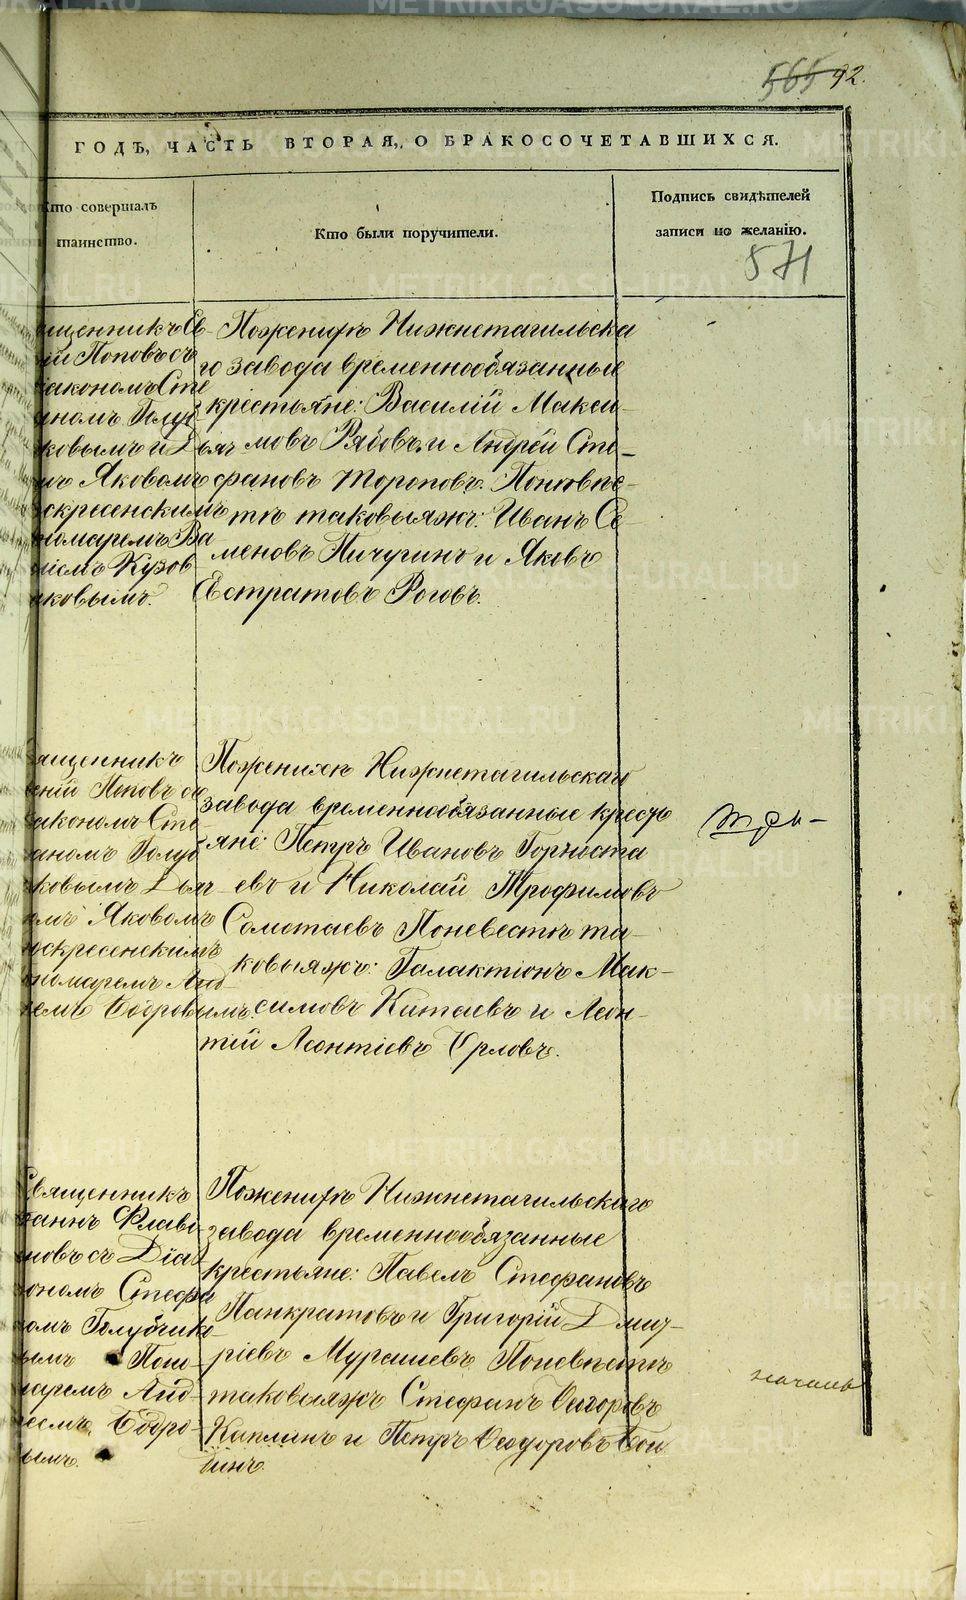 565 92.
ГОДЪ, ЧАСТЬ ВТОРАЯ, О БРАКОСОЧЕТАВШИХСЯ.
Кто совершалъ
таинство.
Кто были поручители.
Подпись свидѣтелей
записи по желанію.
571
ященникъ Ев-
ій Поповъ съ
іакономъ Сте
аномъ Голуб-
ковымъ и Дьяч
мъ Яковомъ
скресенскимъ
номаремъ Ва
ліемъ Кузов
иковымъ.
По женихѣ Нижнетагильска
го завода временнообязанные
крестьяне: Василій Макси-
мовъ Рябовъ и Андрей Сте-
фановъ Тороповъ. По невѣс-
тѣ таковыяжъ: Иванъ Се-
меновъ Пичугинъ и Яковъ
Естратовъ Роговъ.
вященникъ
еній Поповъ съ
іакономъ Сте
аномъ Голуб
ковымъ Дьяч
мъ Яковомъ
оскресенскимъ
ономаремъ Анд
реемъ Бобровымъ.
По женихѣ Нижнетагильскаго
завода временнообязанные кресть
яне: Петръ Ивановъ Горноста
евъ и Николай Трофимовъ
Сомотаевъ По невестѣ та-
ковыяжъ: Галактіонъ Мак-
симовъ Китаевъ и Леон-
тій Леонтіевъ Орловъ.
Священникъ
оаннъ Флави
новъ съ Діа
кономъ Стефа
номъ Голубчико
вымъ Поно-
маремъ Анд-
реемъ Бобро-
вымъ.
По женихѣ Нижнетагильскаго
завода временнообязанные
крестьяне: Павелъ Стефановъ
Панкратовъ и Григорій Дмит-
ріевъ Мурашевъ По невѣстѣ
таковыяжъ Стефанъ Егоровъ
Каплинъ и Петръ Ѳеодоровъ
началъ
METRIKI.GASO-URAL.RU